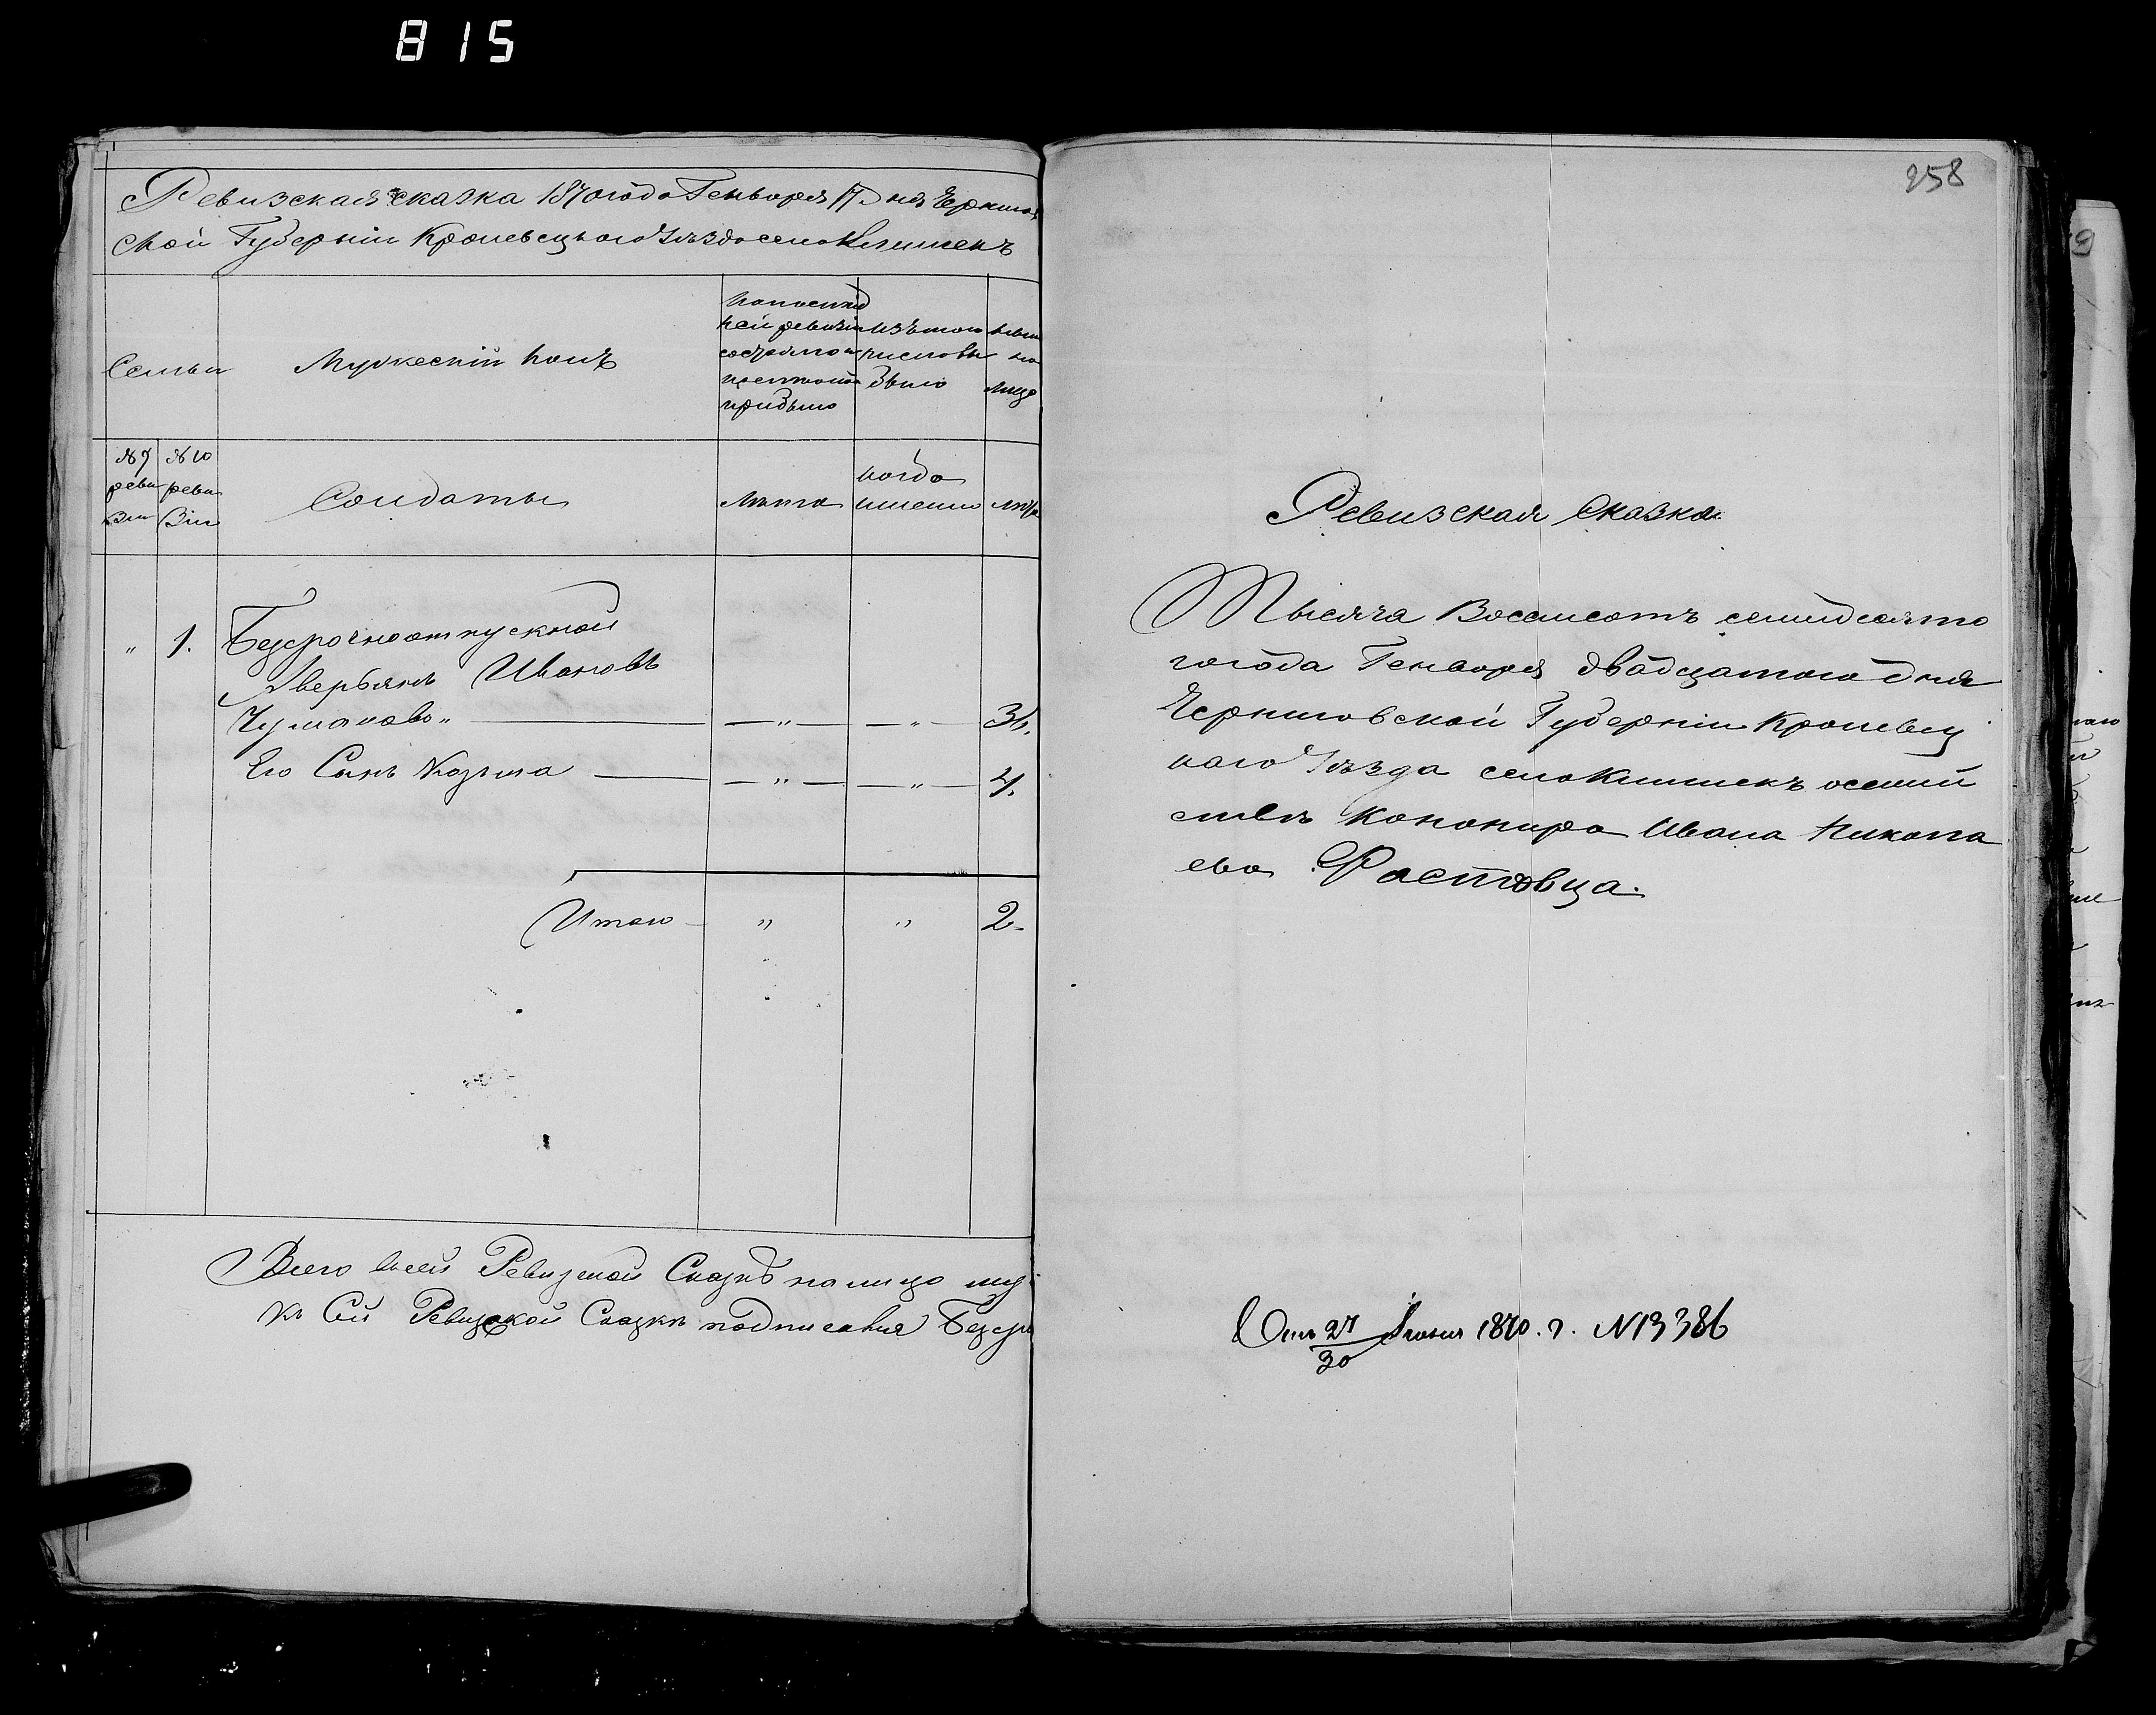 815
Ревизская сказка 1870 года Генворя 17 дня Чернигов
ской Губерніи Кролевецкого Уѣзда село Клишекъ
Семьи
Мужескій полъ
По последней ревизіи состояло и после того прибыло
Изъ того числа выбыло
Ныне на лицо
№ 9 реви зіи
№ 10 реви зіи
Солдаты
Лѣта
когда именно
лѣта
„ 1. Безсрочноотпускной
Аверьянъ Ивановъ
Чумаково „ — „ — — „ — 34.
Его Сынъ Козьма — „ — — „ — 4.
Итого „ „ 2.
Всего въ сей Ревизской Сказкѣ на лицо муж
Къ Сей Ревизской Сказкѣ подписался Безсро
258
Ревизская Сказка
Тысяча Восемсотъ семидсято
гогода Генворя двадцатого дня
Черниговской Губерніи Кролевец
каго Уѣзда село Клишекъ осемий
ствѣ Канонира Ивана Никола
ева Растовца.
От 27/30 Іюня 1870. г. №13386